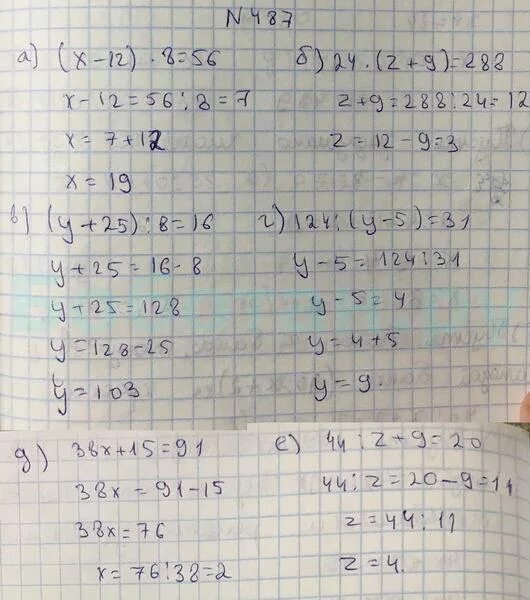 N 487
а) (x-12) · 8=56
x-12=56:8=7
x=7+12
x=19
б) 24·(z+9)=288
z+9=288:24=12
z=12-9=3
в) (y+25):8=16
y+25=16·8
y+25=128
y=128-25
y=103
г) 124:(y-5)=31
y-5=124:31
y-5=4
y=4+5
y=9.
д) 38x+15=91
38x=91-15
38x=76
x=76:38=2
е) 44:z+9=20
44:z=20-9=11
z=44:11
z=4.